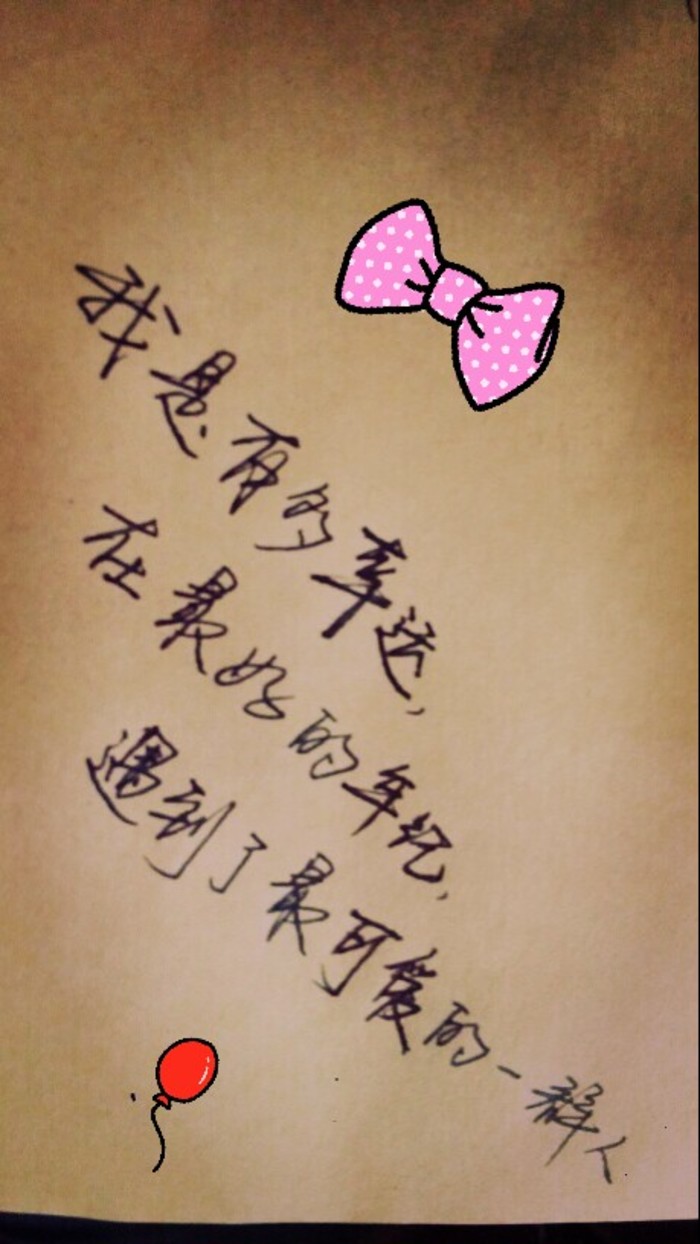 我是有的幸运,
在最好的年纪,
遇到了最可爱的一群人